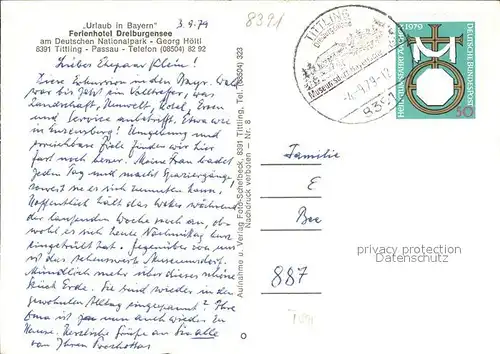 "Urlaub in Bayern"
3.9.79
8391
Ferienhotel Dreiburgensee
am Deutschen Nationalpark - Georg Höltl
8391 Tittling - Passau - Telefon (08504) 82 92
Liebes Ehepaar Klein!
Ihre Exkursion in den Bayr. Wald
war bis jetzt ein Volltreffer, was
Landschaft, Umwelt, Hotel, Essen
und Service anbetrifft. Etwa wie
in Luxemburg! Umgebung und
erreichbare Ziele finden wir hier
fast noch besser. Meine Frau badet
jeden Tag und macht Spaziergänge,
soweit sie es sich zumuten kann.
Hoffentlich hält das Wetter während
der laufenden Woche noch an, ob-
wohl es sich heute Nachmittag kurz
eingetrübt hat. Gegenüber von uns
ist das sehenswerte Museumsdorf.
Mündlich mehr über dieses schöne
Stück Erde. Sie sind wieder in den
gewohnten Alltag eingespannt? Ihre
Oma ist ja nun auch wieder zu
Hause. Herzliche Grüße an Sie alle
von Ihren
Aufnahme u. Verlag Foto-Scherbeck, 8391 Tittling, Tel. (08504) 323
Nachdruck verboten - Nr. 8
TITTLING
Dreiburgensee
Museumsdorf Bayerischer Wald
-4.9.79-12
8391
HEILIGTUMSFAHRT AACHEN 1979
DEUTSCHE BUNDESPOST
50
Familie
E
Boe
887
privacy protection
Datenschutz